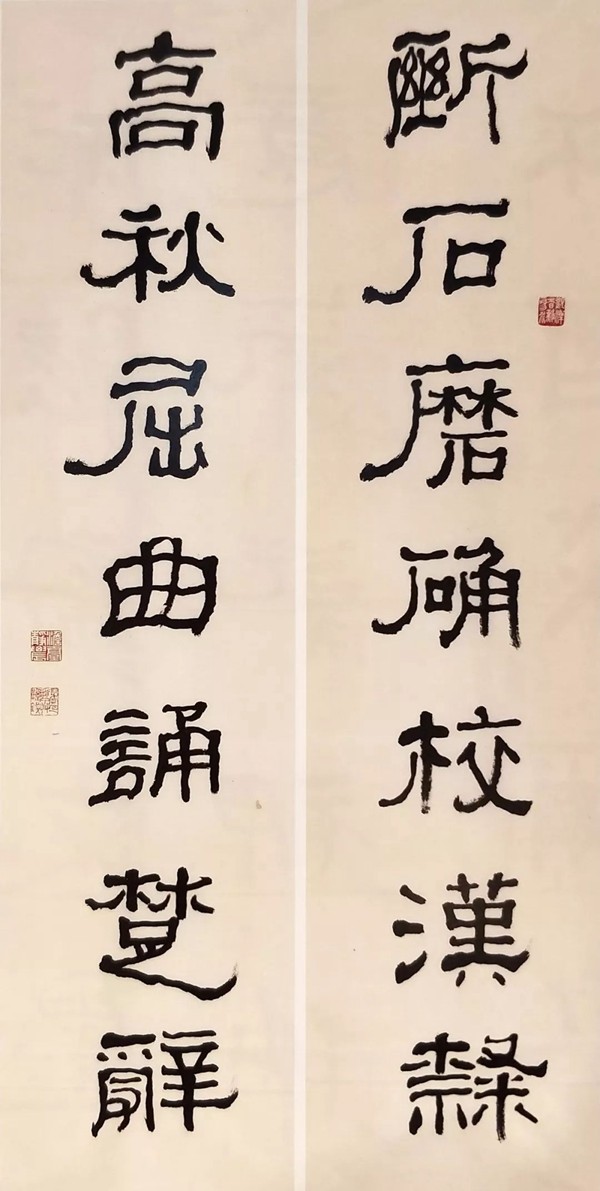 斷石磨确校漢隸
高秋屈曲誦楚辭